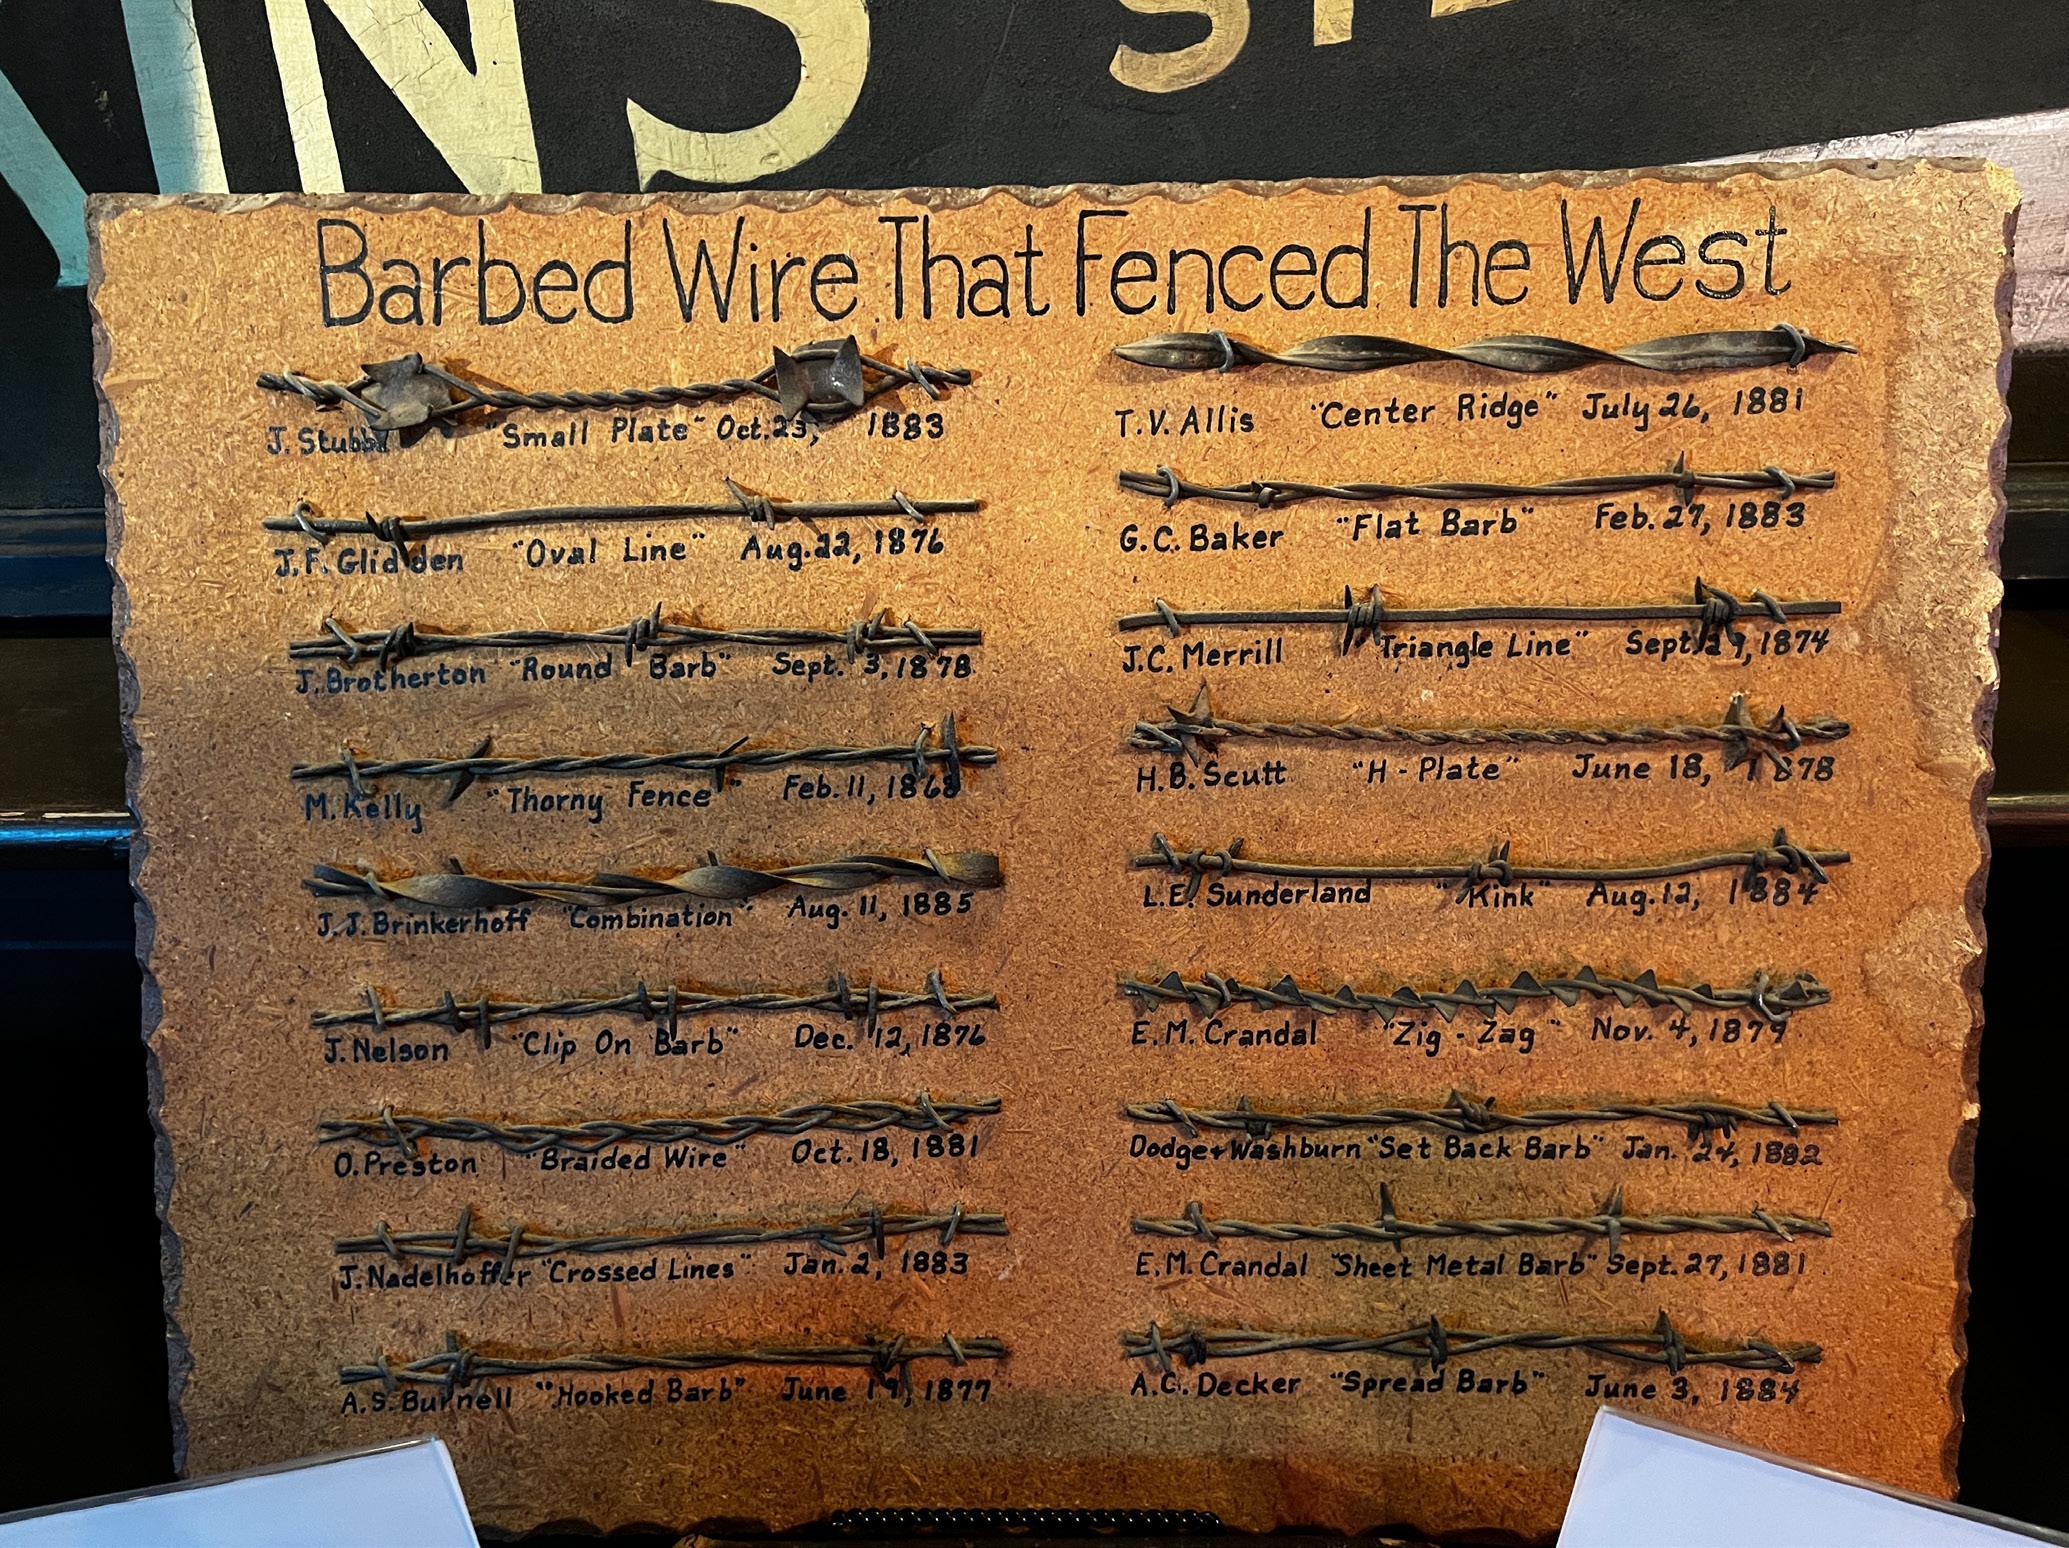 INS
Barbed Wire That Fenced The West
J. Stubbs "Small Plate" Oct. 23, 1883
J. F. Glidden "Oval Line" Aug. 22, 1876
J. Brotherton "Round Barb" Sept. 3, 1878
M. Kelly "Thorny Fence" Feb. 11, 1868
J. J. Brinkerhoff "Combination" Aug. 11, 1885
J. Nelson "Clip On Barb" Dec. 12, 1876
O. Preston "Braided Wire" Oct. 18, 1881
J. Nadelhoffer "Crossed Lines" Jan. 2, 1883
A. S. Burnell "Hooked Barb" June 19, 1877
T. V. Allis "Center Ridge" July 26, 1881
G. C. Baker "Flat Barb" Feb. 27, 1883
J. C. Merrill "Triangle Line" Sept. 29, 1874
H. B. Scutt "H - Plate" June 18, 1878
L. E. Sunderland "Kink" Aug. 12, 1884
E. M. Crandal "Zig - Zag" Nov. 4, 1879
Dodge + Washburn "Set Back Barb" Jan. 24, 1882
E. M. Crandal "Sheet Metal Barb" Sept. 27, 1881
A. C. Decker "Spread Barb" June 3, 1884